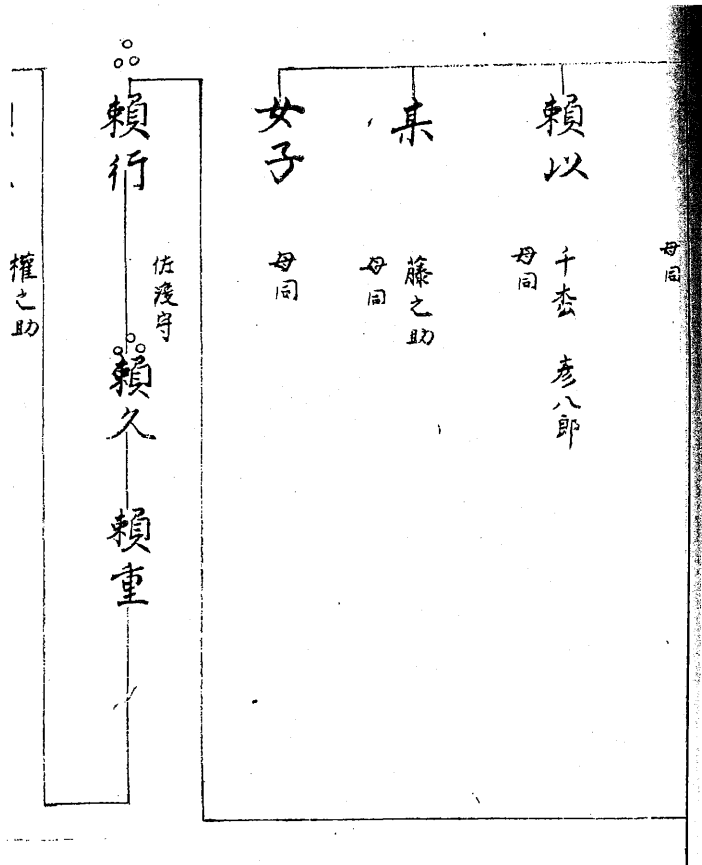 母同
賴以
千枩 彥八郎
母同
某
藤之助
母同
女子
母同
賴行
佐渡守
賴久
賴重
權之助